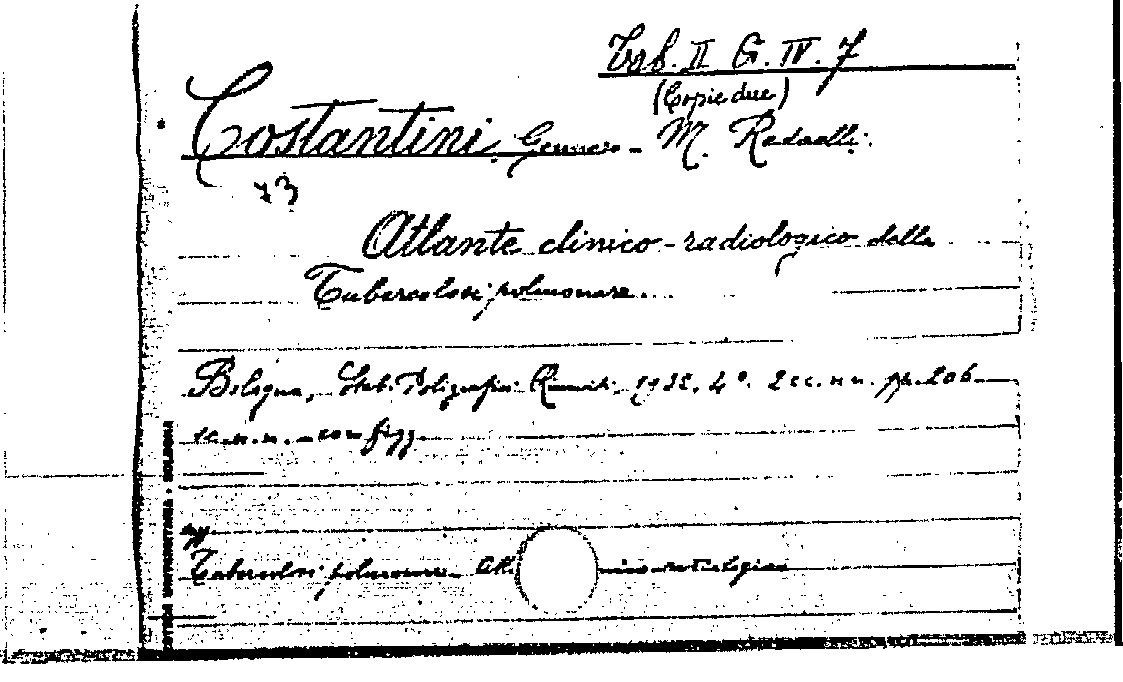 Tab. II G. IV. 7
(Copie due)
Costantini, Gennaro - M. Redaelli.
73
Atlante clinico-radiologico della
Tubercolosi polmonare.
Bologna, Stab. Poligrafici Riuniti 1932, 4°. 2 cc. n n. pp. 206
1 c. n. n. - con figg
Tubercolosi polmonare
BIBLIOTECA UNIVERSITARIA - BOLOGNA